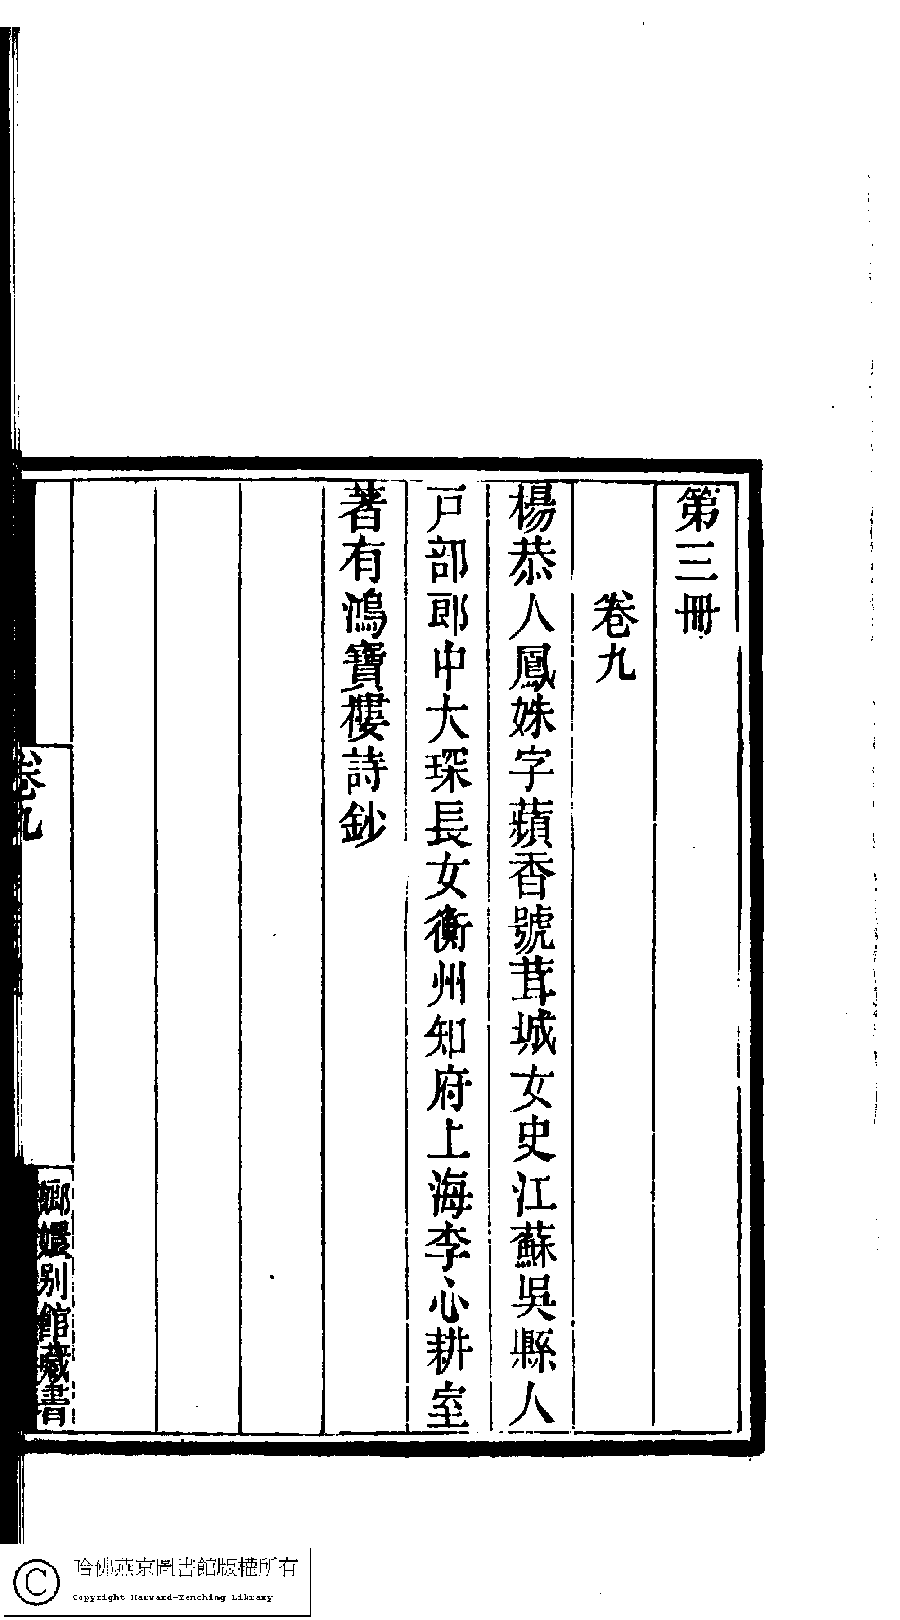 第三冊
卷九
楊恭人鳳姝字蘋香號茸城女史江蘇吳縣人
戸部郎中大琛長女衡州知府上海李心耕室
著有鴻寶樓詩鈔
卷九
嫏嬛别館藏書
哈佛燕京圖書館版權所有
Copyright Harvard-Yenching Library